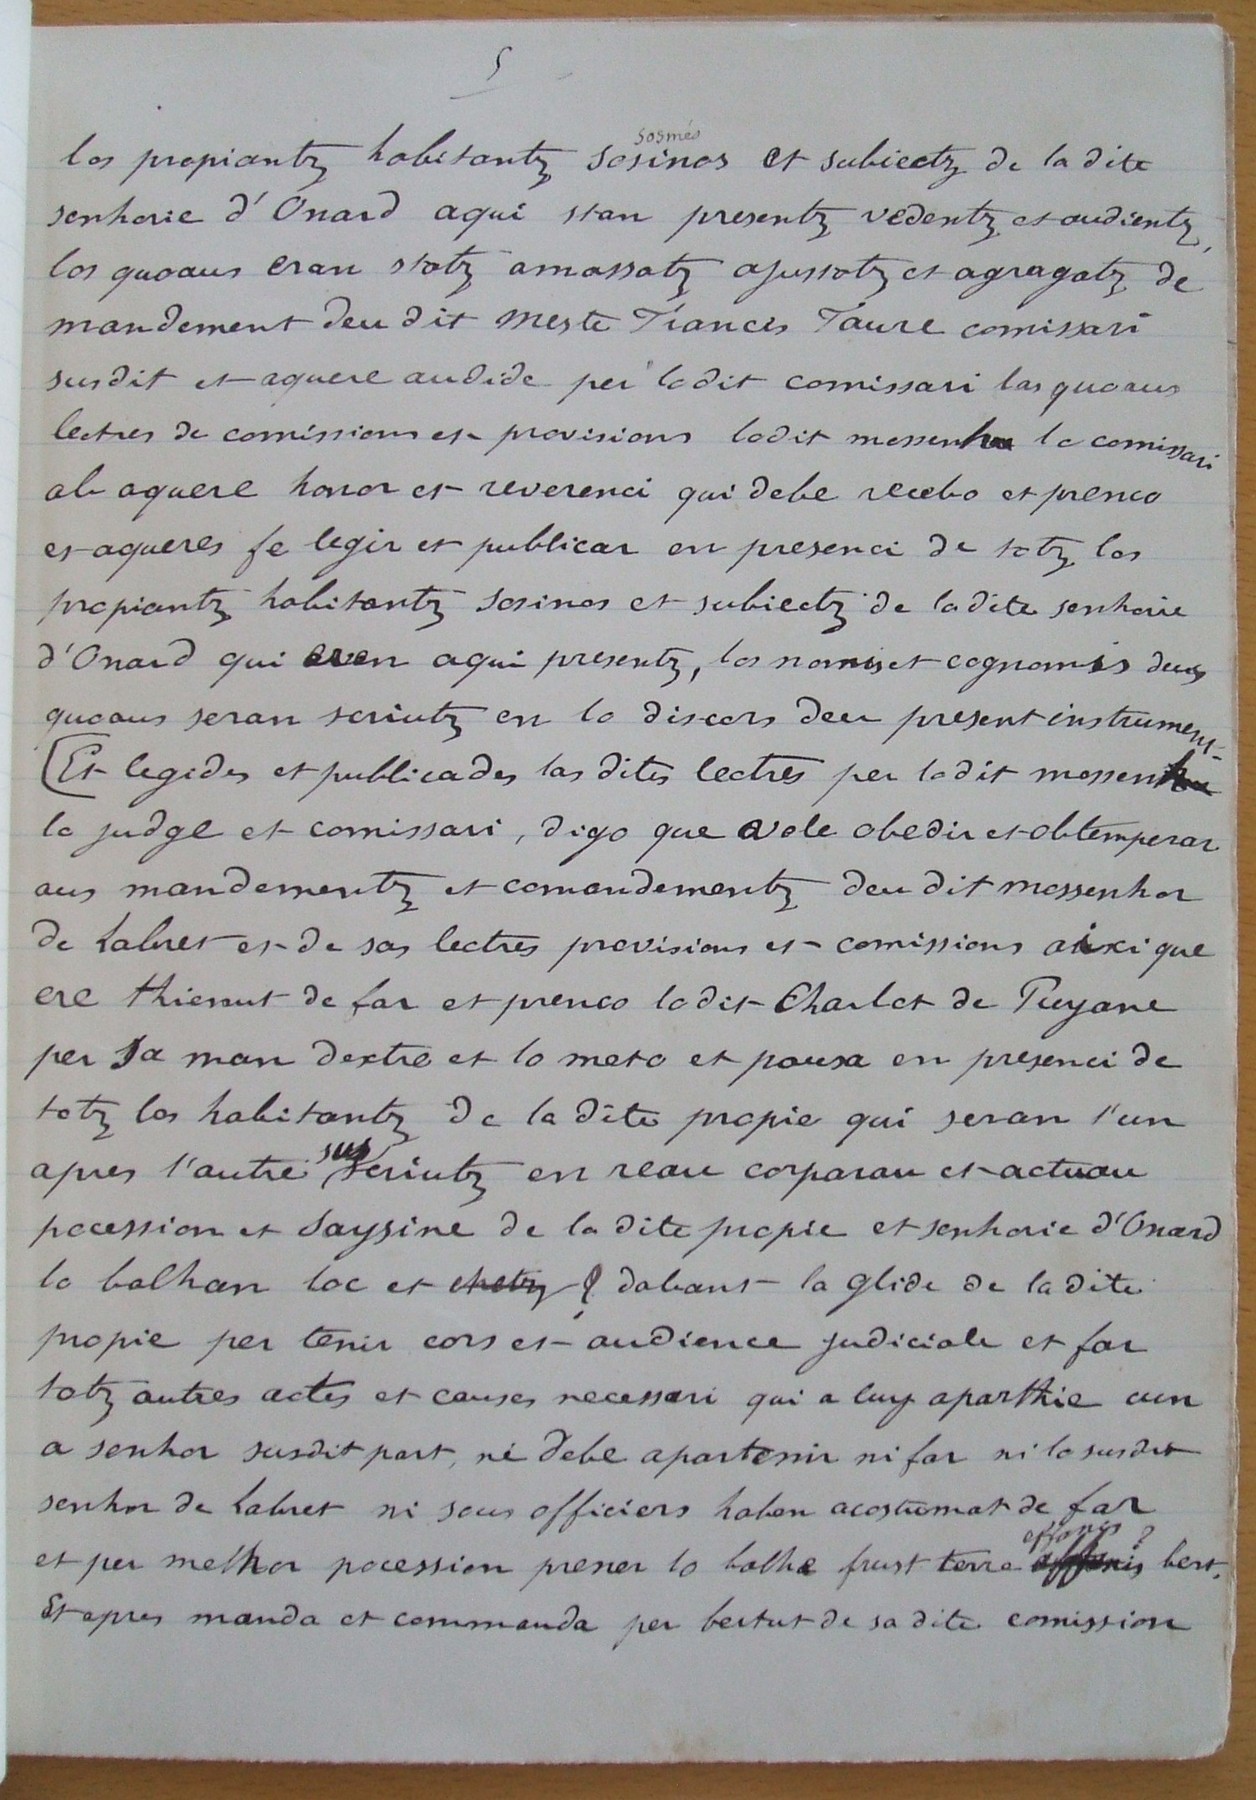 5
sosmés
los propiantz habitantz sosinos et subiectz de la dite
senhorie d'Onard aqui stan presentz vedentz et audientz,
los quoaus eran statz amassatz ajustatz et agregatz de
mandement deu dit meste Francis Faure comissari
susdit et aquere audide per lodit comissari las quoaus
lectres de comissions et provisions lodit messenhu lo comissari
ab aquere honor et reverenci qui debe recebo et prenco
et aqueres fe legir et publicar en presenci de totz los
propiantz habitantz sosinos et subiectz de la dite senhorie
d'Onard qui eren aqui presentz, los noms et cognoms deus
quoaus seran scriutz en lo discors deu present instrument
Et legides et publicades las dites lectres per lodit messenhu
lo judge et comissari, digo que vole obedir et obtemperar
aus mandementz et comandementz deu dit mossenhor
de Labret et de sas lectres provisions et comissions aixi que
ere thienut de far et prenco lodit Charlot de Puyane
per sa man dextre et lo meto et pousa en presenci de
totz los habitantz de la dite propie qui seran l'un
apres l'autre sus scriutz en reau corporau et actuau
pocession et saysine de la dite propie et senhorie d'Onard
lo balhan loc et chetz ? dabant la glide de la dite
propie per tenir cors et audience judiciale et far
totz autres actes et causes necessari qui a luy aparthie cum
a senhor susdit part, ni debe apartenir ni far ni lo susdit
senhor de Labret ni sous officiers haben acostumat de far
effonis ?
et per melhor pocession prener lo balhe frust terre bert.
Et apres manda et commanda per bertut de sa dite comission